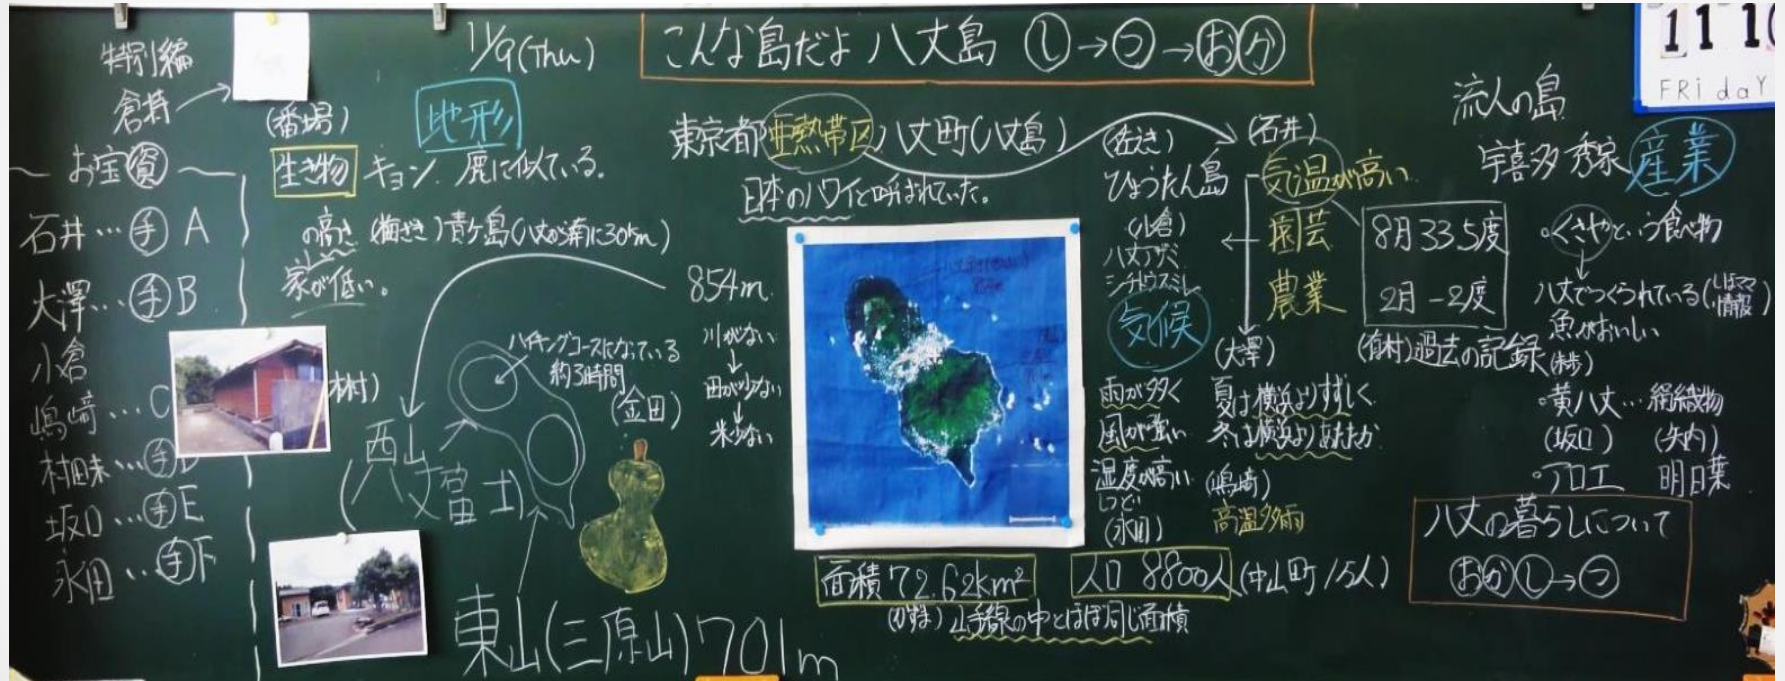 特別編
倉持
お宝資
石井…手 A
大澤…手 B
小倉
嶋﨑…C
村田
坂口…手E
永田…手F
11/9(Thu)
こんな島だよ 八丈島 し→つ→おか
(番場)
地形
生き物 キョン. 鹿に似ている。
の高さ
家が低い。
青ヶ島(八丈から南に30km)
854m
川がない
↓
田が少ない
↓
米少ない
ハイキングコースになっている
約3時間
(金田)
村)
西山
(八丈富士)
東山(三原山)701m
東京都(亜熱帯区)八丈町(八丈島)
日本のハワイと呼ばれていた。
面積72.62km²
山手線の中とほぼ同じ面積
人口 8800人(中山町 1.5人)
ひょうたん島
(小倉)
八丈アザミ
シチトウスミレ
気候
雨が多く
風が強い
湿度が高い
(永田)
(石井)
気温が高い
園芸
農業
(大澤)
夏は横浜よりすずしく
冬は横浜よりあたたか
(嶋﨑)
高温多雨
8月 33.5度
2月 -2度
(有村)過去の記録
流人の島
宇喜多秀家
産業
・くさやという食べ物
↓
八丈でつくられている
魚がおいしい
情報)
・黄八丈…絹織物
(坂口) (矢内)
・アロエ 明日葉
八丈の暮らしについて
おかし→つ
11 10
FRidaY